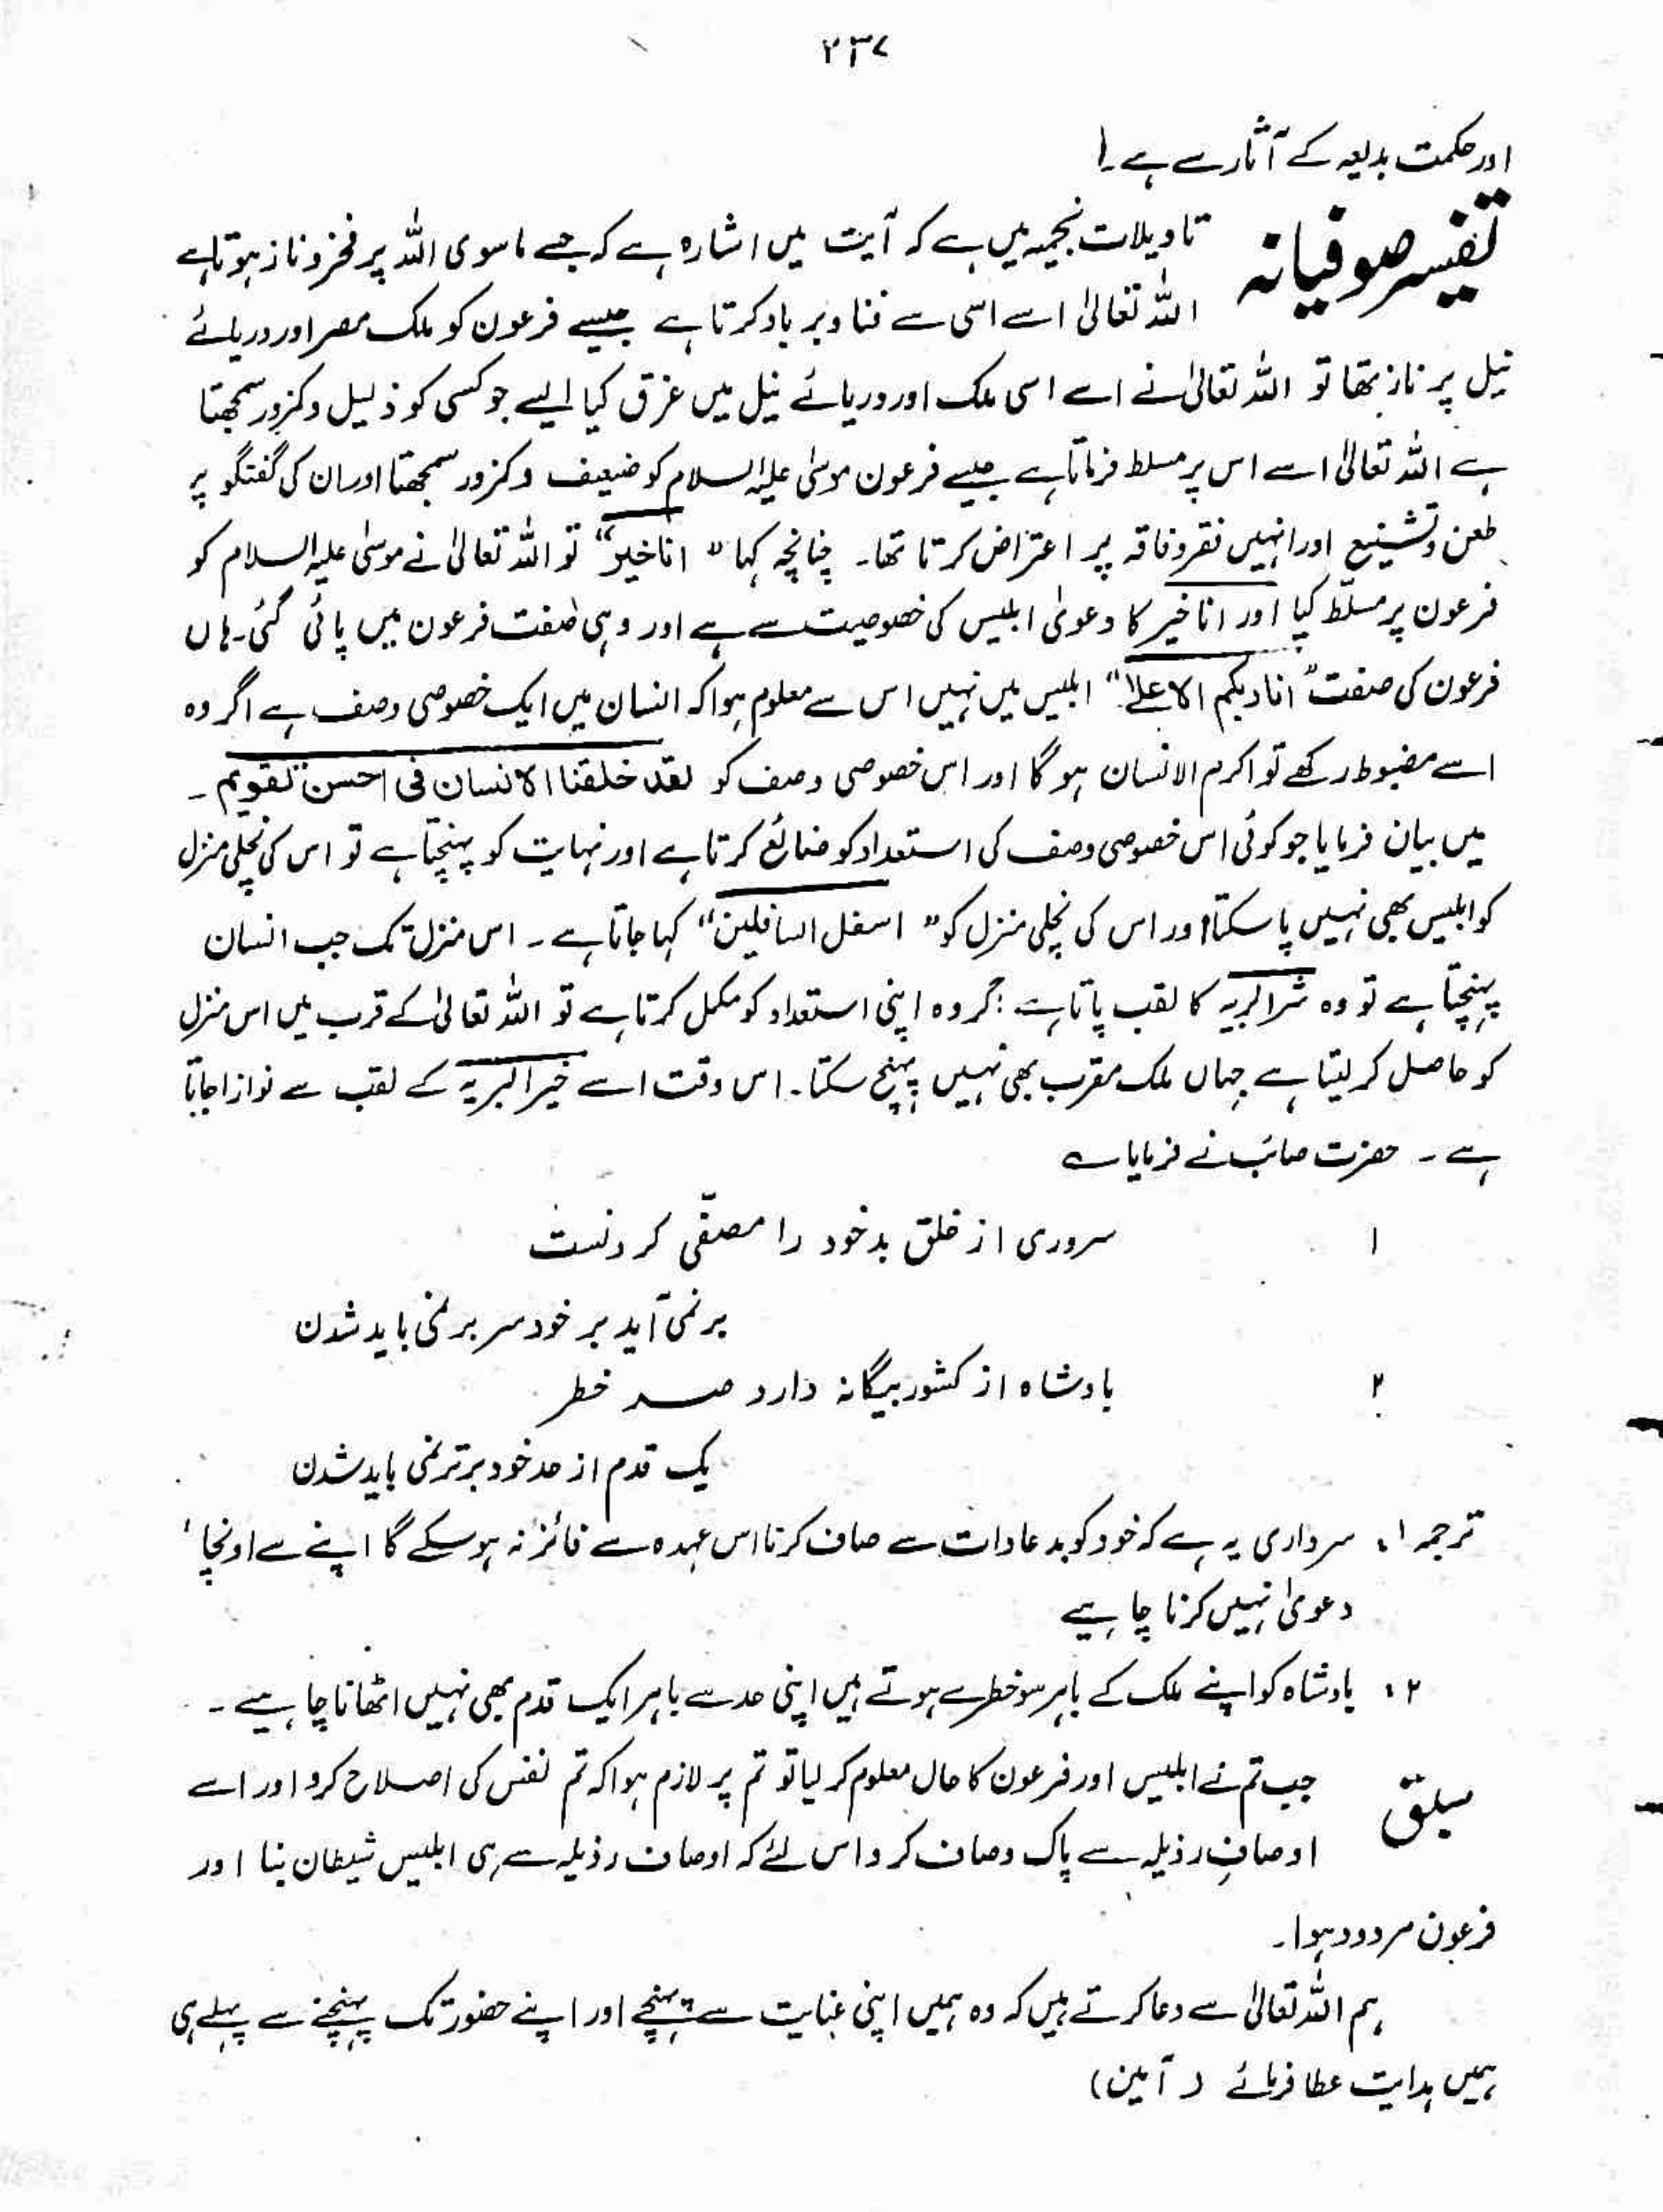 ۲۳۷
اور حکمت بدلیعہ کے آثار سے ہے۔!
تفسیر صوفیانہ
تاویلات نجمیہ میں ہے کہ آیت میں اشارہ ہے کہ جسے ماسوی اللہ پر فخر و ناز ہوتا ہے
اللہ تعالیٰ اسے اسی سے فنا وبرباد کرتا ہے جیسے فرعون کو ملک مصر اور دریائے
نیل پر ناز تھا تو اللہ تعالیٰ نے اسے اسی ملک اور دریائے نیل میں غرق کیا ایسے جو کسی کو ذلیل و کمزور سمجھتا
ہے اللہ تعالیٰ اسے اس پر مسلط فرماتا ہے جیسے فرعون موسیٰ علیہ السلام کو ضعیف و کمزور سمجھتا اور ان کی گفتگو پر
طعن و تشنیع اور انہیں فقر و فاقہ پر اعتراض کرتا تھا۔ چنانچہ کہا "اناخیر" تو اللہ تعالیٰ نے موسیٰ علیہ السلام کو
فرعون پر مسلّط کیا اور اناخیر کا دعویٰ ابلیس کی خصوصیت سے ہے اور وہی صفت فرعون میں پائی گئی۔ ہاں
فرعون کی صفت "انا ربکم الاعلا" ابلیس میں نہیں اس سے معلوم ہوا کہ انسان میں ایک خصوصی وصف ہے اگر وہ
اسے مضبوط رکھے تو اکرم الانسان ہو گا اور اس خصوصی وصف کو لقد خلقنا الانسان فی احسن تقویم۔
میں بیان فرمایا جو کوئی اس خصوصی وصف کی استعداد کو ضائع کرتا ہے اور نہایت کو پہنچتا ہے تو اس کی نچلی منزل
کو ابلیس بھی نہیں پا سکتا اور اس کی نچلی منزل کو "اسفل السافلین" کہا جاتا ہے۔ اس منزل تک جب انسان
پہنچتا ہے تو وہ شرالبریہ کا لقب پاتا ہے اگر وہ اپنی استعداد کو مکمل کرتا ہے تو اللہ تعالیٰ کے قرب میں اس منزل
کو حاصل کر لیتا ہے جہاں ملک مقرب بھی نہیں پہنچ سکتا۔ اس وقت اسے خیر البریہ کے لقب سے نوازا جاتا
ہے۔ حضرت صائب نے فرمایا ؎
۱ سروری از خلق بد خود را مصفّی کردنست
برنمی آید بر خود سر برنمی باید شدن
۲ بادشاہ از کشور بیگانہ دارد صد خطر
یک قدم از حد خود برتر نمی باید شدن
ترجمہ ۱، سرداری یہ ہے کہ خود کو بد عادات سے صاف کرنا اس عہدہ سے فائز نہ ہو سکے گا اپنے سے اونچا
دعویٰ نہیں کرنا چاہیے
۲، بادشاہ کو اپنے ملک کے باہر سو خطرے ہوتے ہیں اپنی حد سے باہر ایک قدم بھی نہیں اٹھانا چاہیے۔
سبق
جب تم نے ابلیس اور فرعون کا حال معلوم کر لیا تو تم پر لازم ہوا کہ تم نفس کی اصلاح کرو اور اسے
اوصافِ رذیلہ سے پاک وصاف کرو اس لئے کہ اوصاف رذیلہ سے ہی ابلیس شیطان بنا اور
فرعون مردود ہوا۔
ہم اللہ تعالیٰ سے دعا کرتے ہیں کہ وہ ہمیں اپنی عنایت سے پہنچے اور اپنے حضور تک پہنچنے سے پہلے ہی
ہمیں ہدایت عطا فرمائے (آمین)